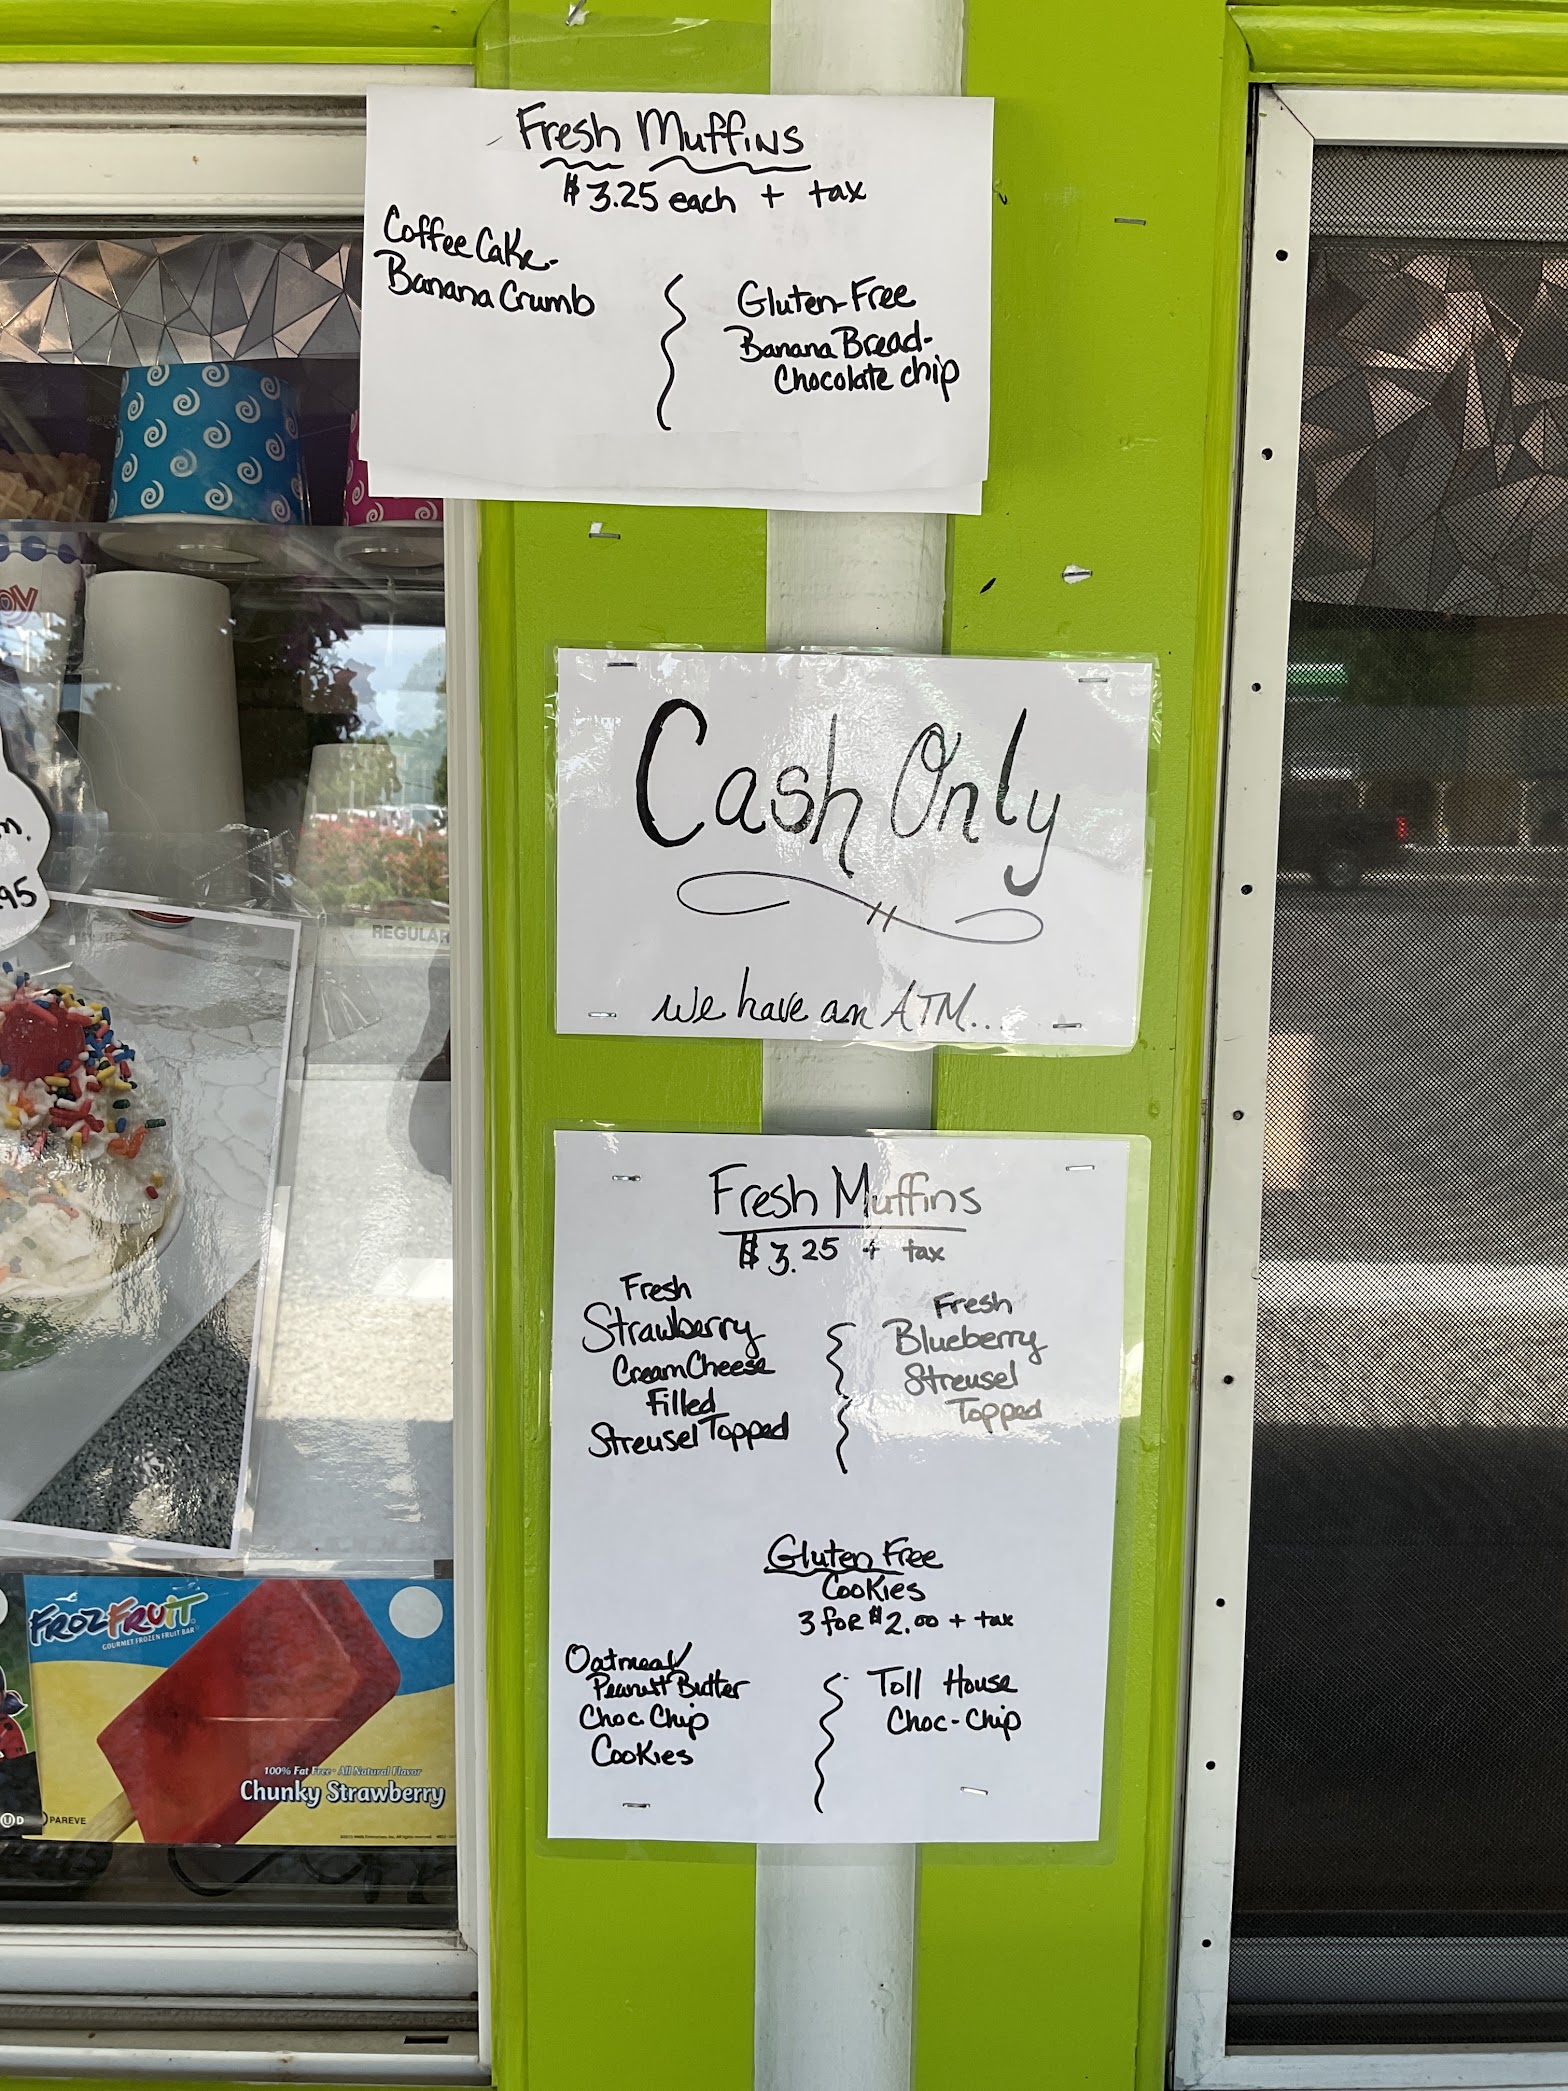 Fresh Muffins
$3.25 each + tax
Coffee Cake-
Banana Crumb
Gluten-Free
Banana Bread-
Chocolate chip
Cash Only
we have an ATM...
Fresh Muffins
$3.25 + tax
Fresh
Strawberry
Cream Cheese
Filled
Streusel Topped
Fresh
Blueberry
Streusel
Topped
Gluten Free
Cookies
3 for $2.00 + tax
Oatmeal/
Peanut Butter
Choc Chip
Cookies
Toll House
Choc-Chip
REGULAR
95
FROZFRUIT
GOURMET FROZEN FRUIT BAR
100% Fat Free - All Natural Flavor
Chunky Strawberry
U D
PAREVE